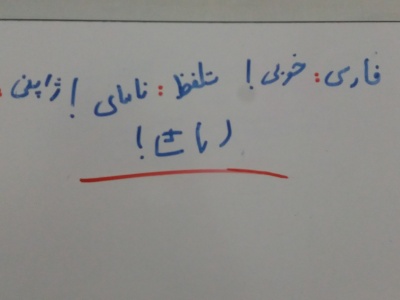 فارسی: خوبی! تلفظ: نامای! ژاپنی: